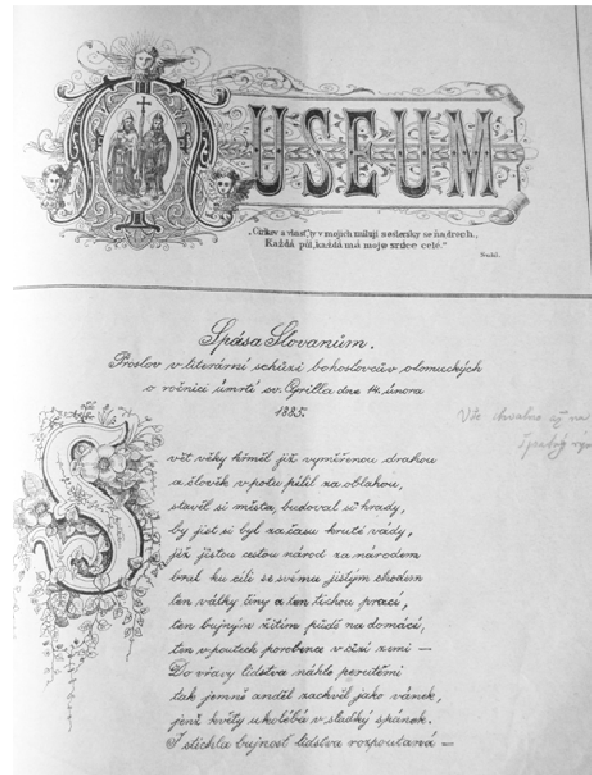 MUSEUM
„Církev a vlasť, ty v mojich milují sestersky se ňadrech,
Každá půl, každá má moje srdce celé."
Sušil.
Spása Slovanům.
Proslov v literární schůzi bohoslovcův olomouckých
o ročnici úmrtí sv. Cyrilla dne 14. února
1885.
Vše chvalno až na
Svět věky hřměl již vyměřenou drahou
a člověk v potu pílil za oblahou,
stavěl si města, budoval si hrady,
by jist si byl za času kruté vády,
jíž jistou cestou národ za národem
bral ku cíli se svému jistým chodem
ten války činy a ten tichou prací,
ten bujným žitím půdě na domácí,
ten v poutech porobena v cizí zemi —
Do vřavy lidstva náhle perutěmi
tak jemně anděl zachvěl jako vánek,
jenž květy ukolébá v sladký spánek.
I ztichla bujnosť lidstva rozpoutaná —